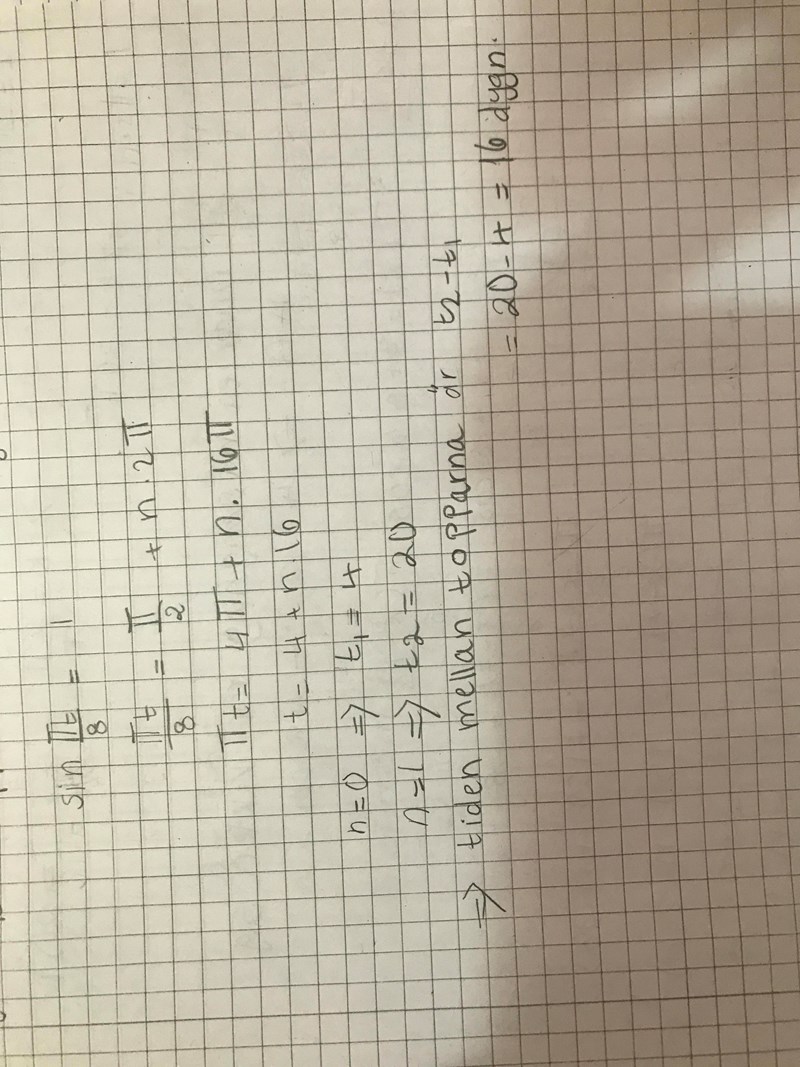 sin πt/8 = 1
πt/8 = π/2 + n·2π
πt = 4π + n·16π
t = 4 + n16
n=0 ⇒ t₁ = 4
n=1 ⇒ t₂ = 20
⇒ tiden mellan topparna är t₂-t₁
= 20-4 = 16 dygn.